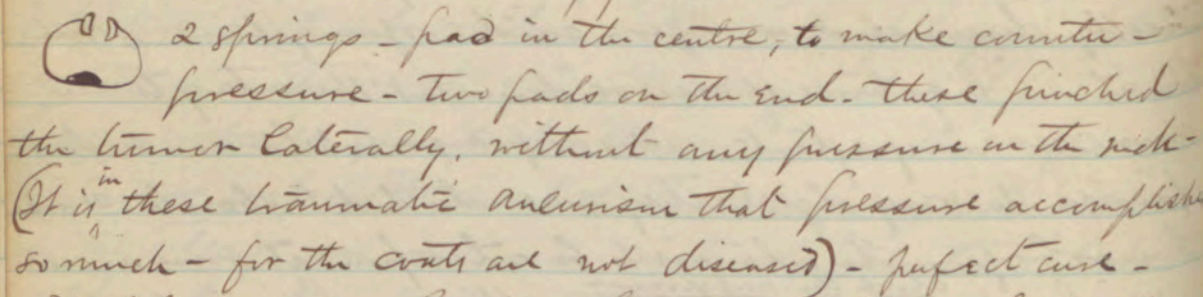 2 springs - pad in the centre, to make counter -
pressure - two pads on the end - these pinched
the tumor laterally, without any pressure on the neck -
(It is in these traumatic aneurism that pressure accomplishes
so much - for the coats are not diseased) - perfect cure -